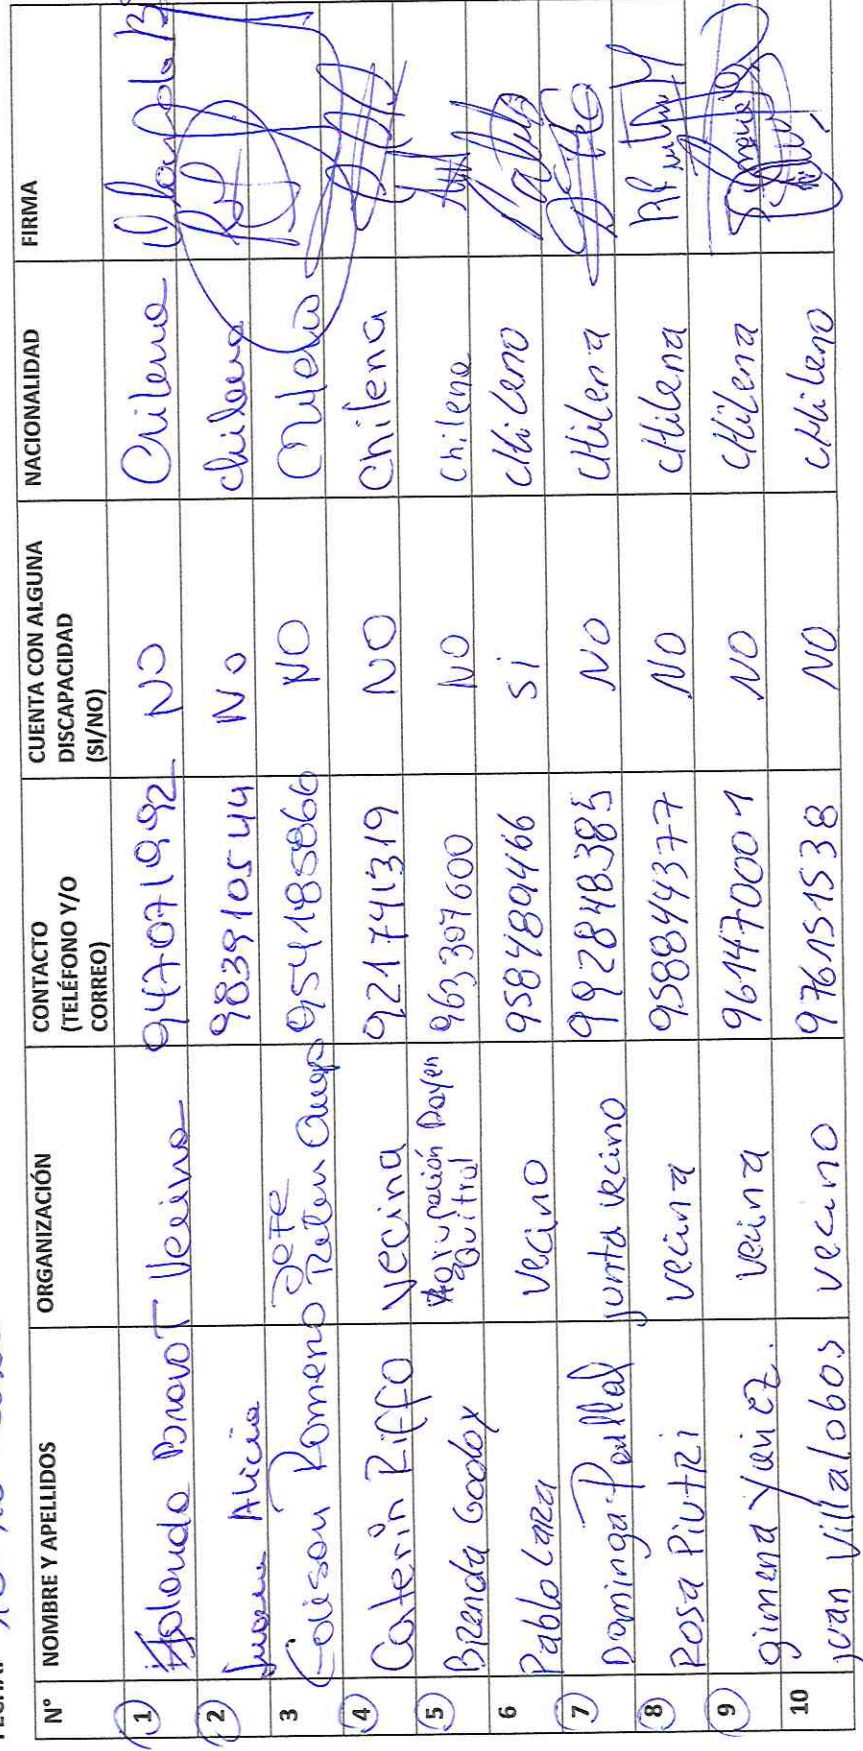 N° NOMBRE Y APELLIDOS ORGANIZACIÓN CONTACTO (TELÉFONO Y/O CORREO) CUENTA CON ALGUNA DISCAPACIDAD (SI/NO) NACIONALIDAD FIRMA
1 Yolanda Bravo T Vecina 947071992 NO Chilena
2 Juana Alicia 983910544 No chilena
3 Edison Romero Jefe Reten 954185866 NO Chileno
4 Caterin Riffo vecina 921741319 NO Chilena
5 Brenda Godoy Agrupación Rayen Quitral 963397600 NO Chilena
6 Pablo Lara vecino 958489466 si cHileno Pablo
7 Dominga junta vecino 992848385 NO cHilena
8 Rosa Piutri vecina 958844377 NO cHilena
9 gimena Yañez. vecina 961470001 NO cHilena
10 juan Villalobos vecino 976151538 NO cHileno